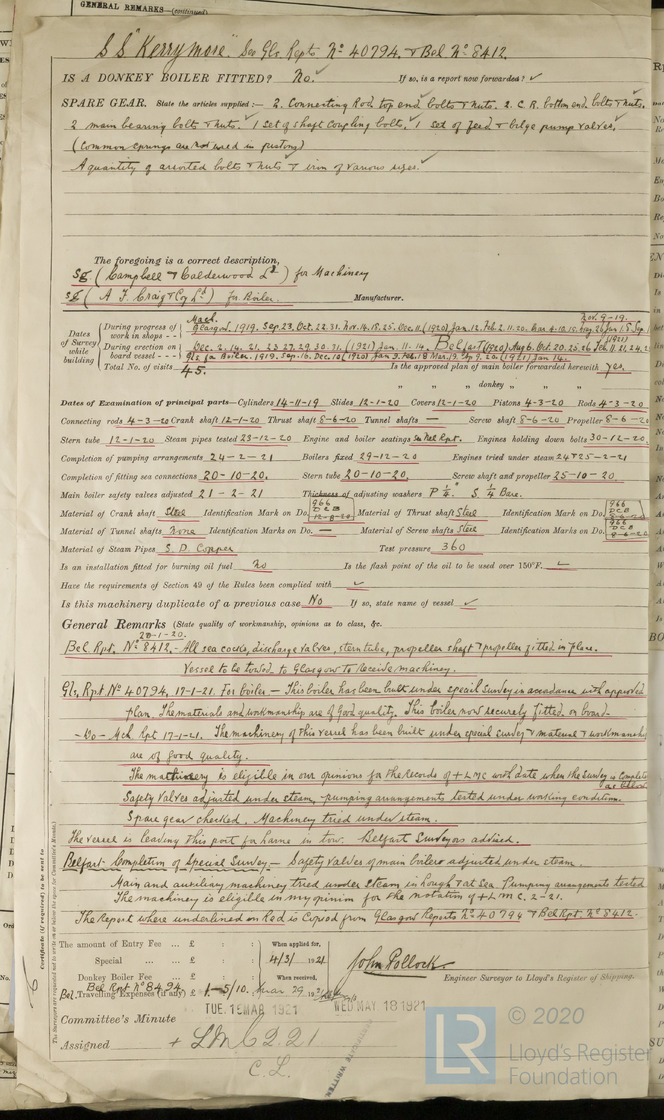 GENERAL REMARKS—(continued)
S.S. "Kerrymore." See Gls. Rept. No 40794. & Bel No 8412.
IS A DONKEY BOILER FITTED? No. ✓ If so, is a report now forwarded? ✓
SPARE GEAR. State the articles supplied:— 2. Connecting Rod top end bolts & nuts. 2. C.R. bottom end. bolts & nuts.
2 main bearing bolts & nuts. 1 set of shaft coupling bolts. 1 set of feed & bilge pump valves.
(Common springs are not used in pistons)
A quantity of assorted bolts & nuts & iron of various sizes.
The foregoing is a correct description,
Sg (Campbell & Calderwood Ld) for Machinery
sg (A. F. Craig & Co Ld) for Boiler. Manufacturer.
Dates of Survey while building
During progress of work in shops - - Mach. Glasgow. 1919. Sep. 23. Oct. 22. 31. Nov. 14. 15. 25. Dec. 11. (1920) Jan. 12. Feb. 2. 11. 20. Mar. 4. 10. 15.
During erection on board vessel - - - Dec. 2. 14. 21. 23. 27. 29. 30. 31. (1921) Jan. 11. 14. Belfast (1920) Aug 6. Oct. 20. 25.
Gls for Boiler. 1919. Sep. 16. Dec. 10 (1920) Jan 3. Feb. 18 Mar. 19. Ap 9. 20. (1921) Jan 14.
Total No. of visits 45. Is the approved plan of main boiler forwarded herewith Yes.
" " donkey " " "
Dates of Examination of principal parts—Cylinders 14-11-19 Slides 12-1-20 Covers 12-1-20 Pistons 4-3-20 Rods 4-3-20
Connecting rods 4-3-20 Crank shaft 12-1-20 Thrust shaft 8-6-20 Tunnel shafts — Screw shaft 8-6-20 Propeller 8-6-20
Stern tube 12-1-20 Steam pipes tested 23-12-20 Engine and boiler seatings See Bel Rpt. Engines holding down bolts 30-12-20.
Completion of pumping arrangements 24-2-21 Boilers fixed 29-12-20 Engines tried under steam 24 & 25-2-21
Completion of fitting sea connections 20-10-20. Stern tube 20-10-20. Screw shaft and propeller 25-10-20.
Main boiler safety valves adjusted 21-2-21 Thickness of adjusting washers P ¼. S. ¼ Bare.
Material of Crank shaft Steel Identification Mark on Do. 966 DCB 12-8-20 Material of Thrust shaft Steel Identification Mark on Do. 966 DCB 8-6-20
Material of Tunnel shafts None Identification Marks on Do. — Material of Screw shafts Steel Identification Marks on Do. 966 DCB 8-6-20
Material of Steam Pipes S. D. Copper Test pressure 360
Is an installation fitted for burning oil fuel No Is the flash point of the oil to be used over 150°F.
Have the requirements of Section 49 of the Rules been complied with ✓
Is this machinery duplicate of a previous case No If so, state name of vessel ✓
General Remarks (State quality of workmanship, opinions as to class, &c.
Bel. Rpt. No. 8412. - All sea cocks, discharge valves, stern tube, propeller shaft & propeller fitted in place.
Vessel to be towed to Glasgow to receive machinery.
Gls. Rpt No 40794, 17-1-21. For boiler — This boiler has been built under special survey in accordance with approved
plan. The materials and workmanship are of good quality. This boiler now securely fitted on board.
- Do - Mch. Rpt 17-1-21. The machinery of this vessel has been built under special survey & material & workmanship
are of good quality.
The machinery is eligible in our opinions for the records of + LMC with date when the Survey is complete
Safety valves adjusted under steam, pumping arrangements tested under working condition.
Spare gear checked. Machinery tried under steam.
The vessel is leaving this port for home in tow. Belfast Surveyors advised.
Belfast. Completion of Special Survey — Safety valves of main boilers adjusted under steam.
Main and auxiliary machinery tried under steam in Lough & at Sea. Pumping arrangements tested
The machinery is eligible in my opinion for the notation of + L.M.C. 2-21.
The Report where underlined in Red is copied from Glasgow Reports No 40794 & Bel Rpt. No 8412.
The amount of Entry Fee ... £ : : When applied for,
Special ... ... £ : : 4/3/1921
Donkey Boiler Fee ... £ : : When received,
Bel. Rpt. No 8494.
Travelling Expenses (if any) £ Mar 29 1921
John Pollock.
Engineer Surveyor to Lloyd's Register of Shipping.
TUE. 15 MAR 1921 WED MAY 18 1921
Committee's Minute
Assigned + LMC 2.21
C. L.
Certificate (if required) to be sent to
LR
© 2020
Lloyd's Register
Foundation